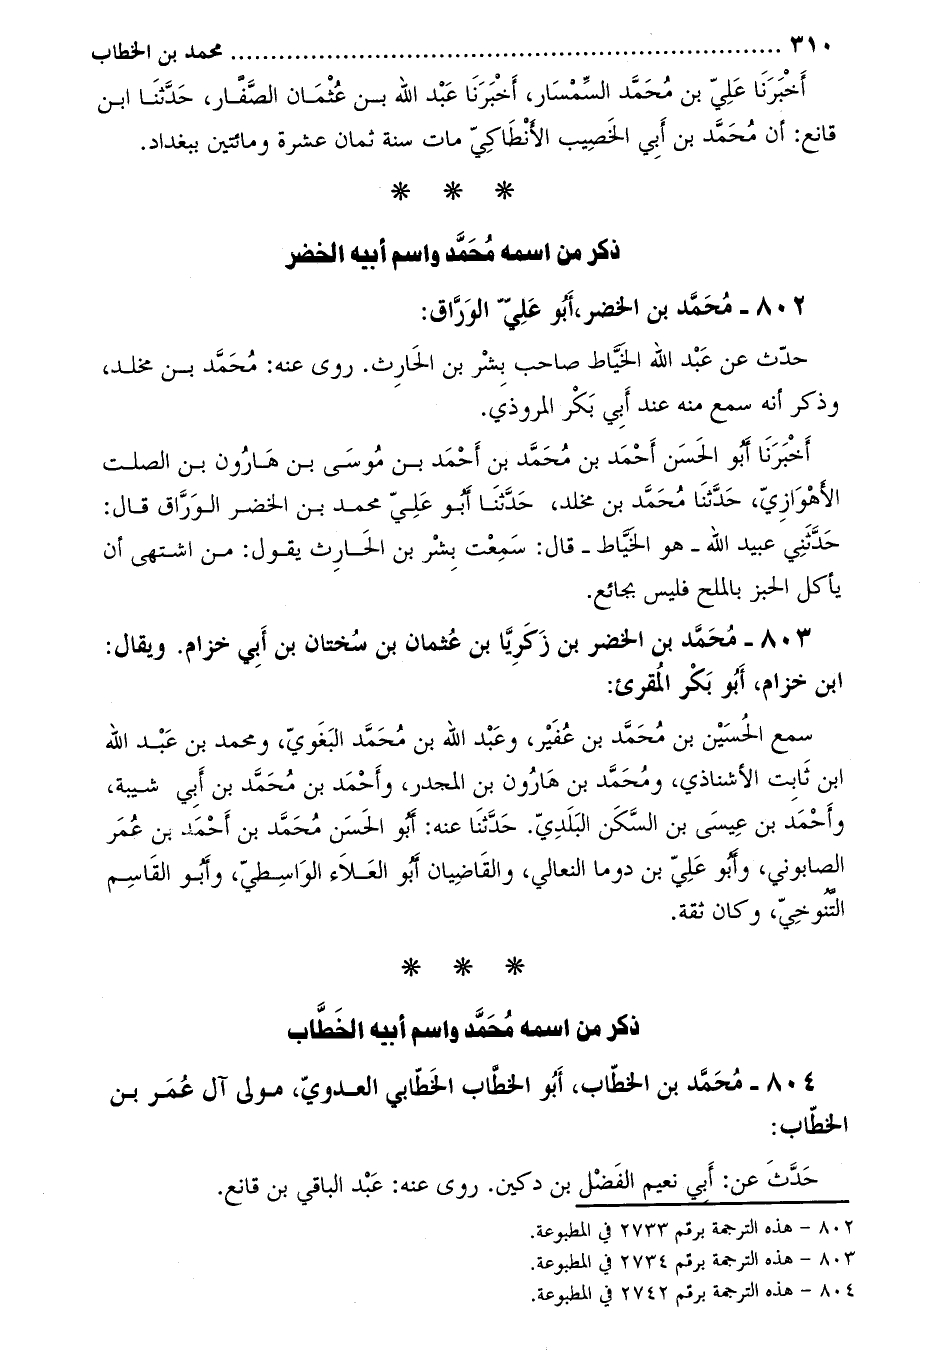 ٣١٠ ........................................................................ محمد بن الخطاب
أَخْبَرَنَا عَلِيّ بن مُحَمَّد السِّمْسَار، أَخْبَرَنَا عَبْد الله بـن عُثْمَان الصَّفَّار، حَدَّثَنَا ابـن
قانع: أن مُحَمَّد بن أَبِي الخَصِيب الأَنْطَاكِيّ مات سنة ثمان عشرة ومائتين ببغداد.
* * *
ذكر من اسمه مُحَمَّد واسم أبيه الخضر
٨٠٢ ـ مُحَمَّد بن الخضر، أَبُو عَلِيّ الوَرَّاق:
حدّث عن عَبْد الله الخَيَّاط صاحب بِشْر بن الحَارِث. روى عنه: مُحَمَّد بـن مخلد،
وذكر أنه سمع منه عند أَبِي بَكْر المروذي.
أَخْبَرَنَا أَبُو الحَسَن أَحْمَد بن مُحَمَّد بن أَحْمَد بـن مُوسَى بـن هَـارُون بن الصلت
الأَهْوَازِيّ، حَدَّثَنَا مُحَمَّد بن مخلد، حَدَّثَنَـا أَبُـو عَلِـيّ محمـد بـن الخضـر الـورَّاق قـال:
حَدَّثَنِي عبيد الله ـ هو الخَيَّاط ـ قال: سَمِعْت بِشْر بن الحَـارِث يقـول: مـن اشـتهى أن
يأكل الخبز بالملح فليس بجائع.
٨٠٣ ـ مُحَمَّد بن الخضر بن زَكَرِيَّا بن عُثمان بن سُختان بن أَبي خزام. ويقال:
ابن خزام، أَبُو بَكْر المُقرئ:
سمع الحُسَيْن بن مُحَمَّد بن عُفَيْر، وعَبْد الله بن مُحَمَّد البَغَوِيّ، ومحمد بن عَبْـد الله
ابن ثَابِت الأشناذي، ومُحَمَّد بن هَارُون بن المجدر، وأَحْمَد بن مُحَمَّد بن أَبِي شـيبة،
وأَحْمَد بن عِيسَى بن السَّكَن البَلَدِيّ. حَدَّثَنَا عنه: أَبُو الحَسَن مُحَمَّد بن أَحْمَد بن عُمَر
الصابوني، وأَبُو عَلِيّ بن دوما النعالي، والقَاضِيان أَبُو العَـلاَء الوَاسِـطيّ، وأَبُـو القَاسِـم
التَّنُوخِيّ، وكان ثقة.
* * *
ذكر من اسمه مُحَمَّد واسم أبيه الخَطَّاب
٨٠٤ ـ مُحَمَّد بن الخطَّاب، أَبُو الخطَّاب الخَطَّابي العـدويّ، مـولى آل عُمَـر بـن
الخطّاب:
حَدَّثَ عن: أَبِي نعيم الفَضْل بن دكين. روى عنه: عَبْد الباقي بن قانع.
٨٠٢ – هذه الترجمة برقم ٢٧٣٣ في المطبوعة.
٨٠٣ – هذه الترجمة برقم ٢٧٣٤ في المطبوعة.
٨٠٤ – هذه الترجمة برقم ٢٧٤٢ في المطبوعة.